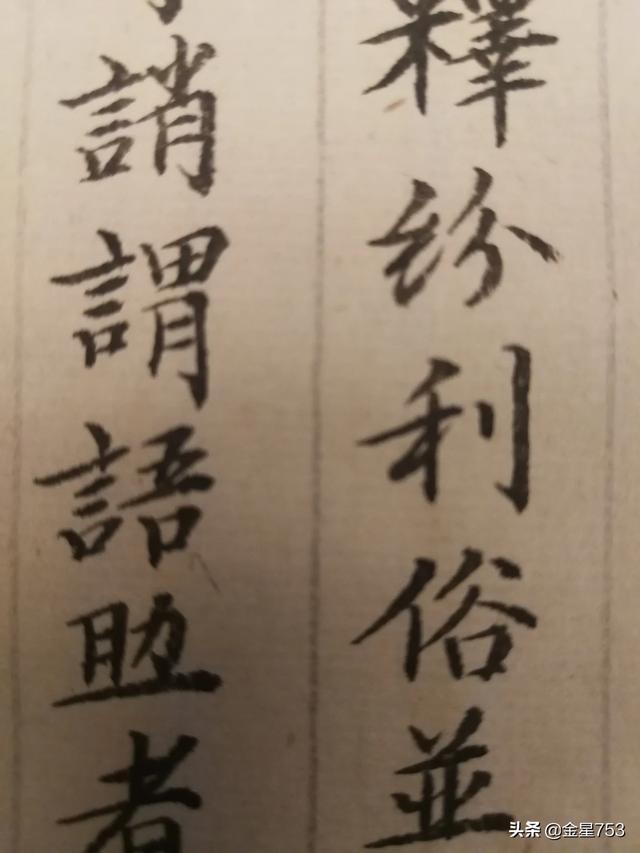 釋紛利俗並
誚謂語助者
头条 @金星753